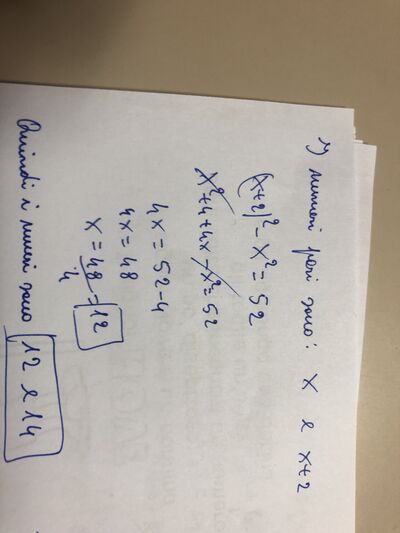 I numeri pari sono: x e x+2
(x+2)² - x² = 52
x² + 4 + 4x - x² = 52
4x = 52 - 4
4x = 48
x = 48/4 = 12
Quindi i numeri sono 12 e 14